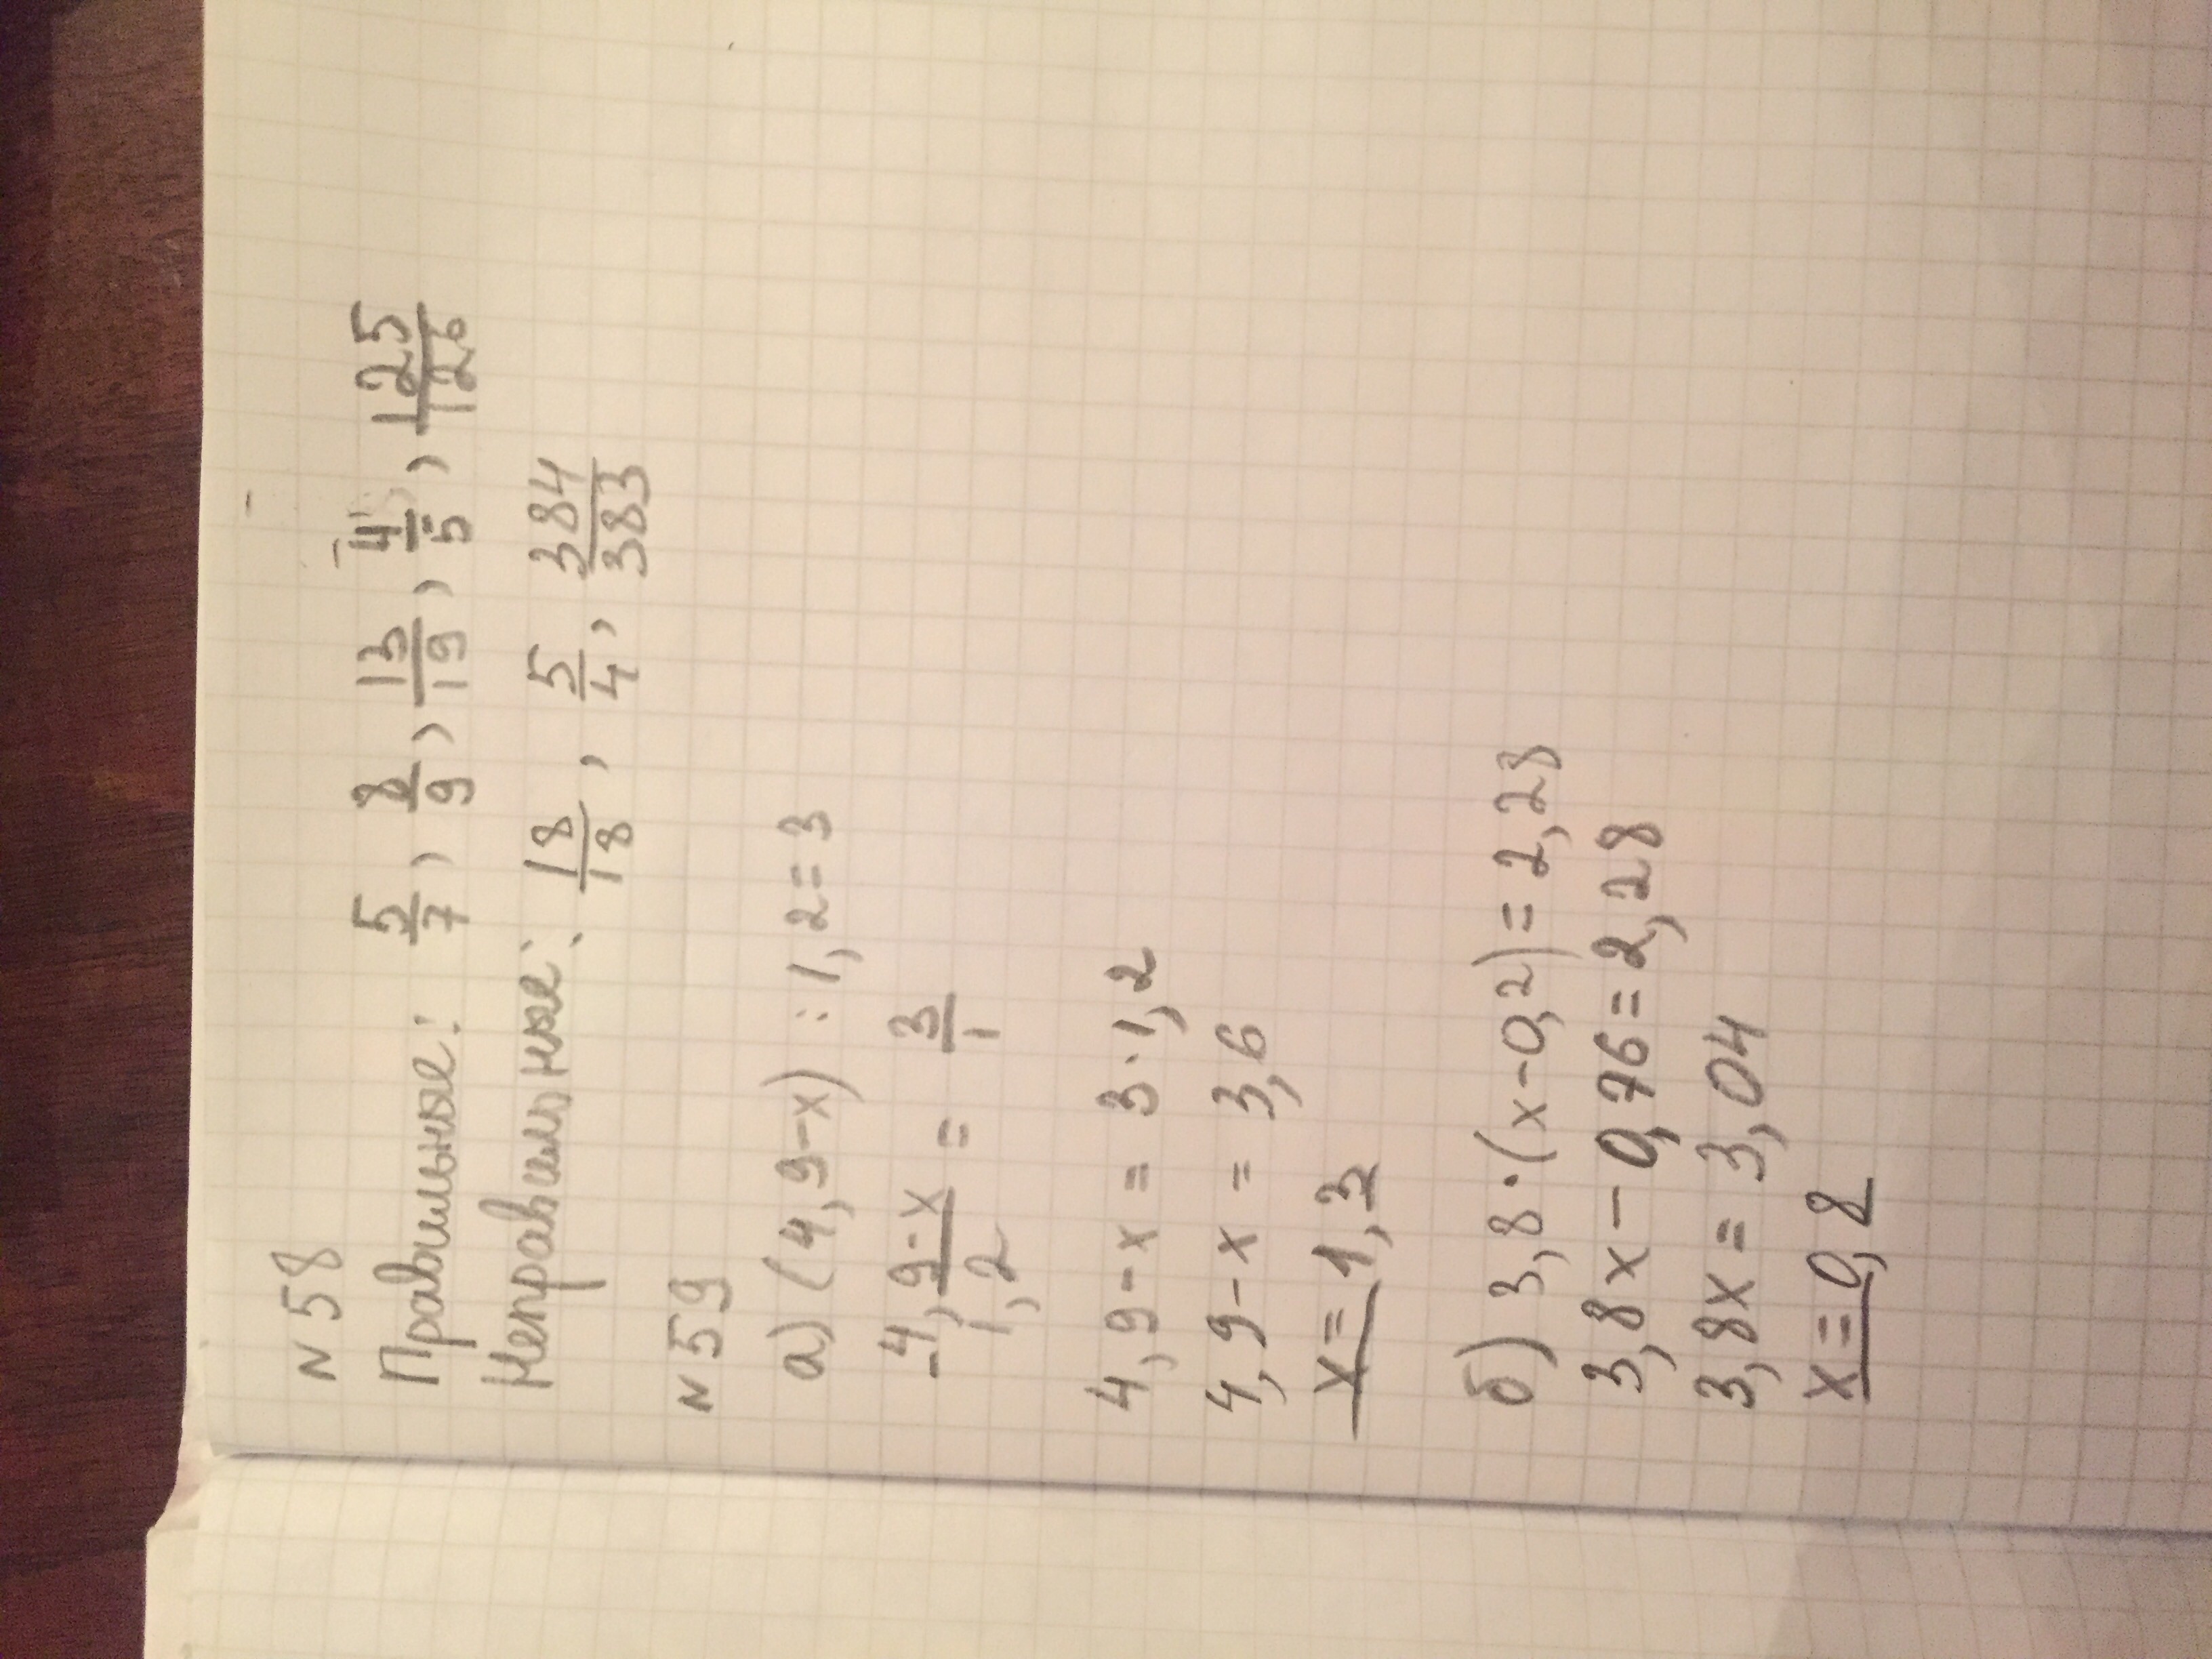 N 58
Правильные: 5/7, 8/9, 13/19, 4/5, 125/126
Неправильные: 18/18, 5/4, 384/383
N 59
а) (4,9-x) : 1,2=3
4,9-x/1,2 = 3/1
4,9-x = 3·1,2
4,9-x = 3,6
x=1,3
б) 3,8·(x-0,2)=2,28
3,8x-0,76=2,28
3,8x=3,04
x=0,8